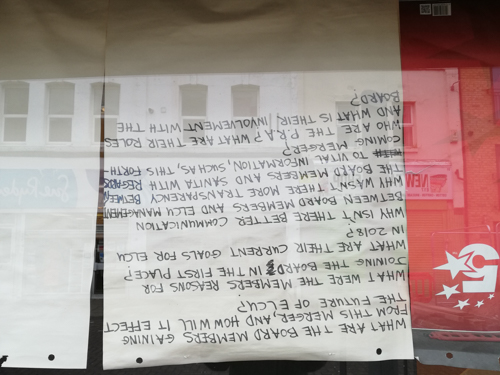 WHAT ARE THE BOARD MEMBERS GAINING
FROM THIS MERGER, AND HOW WILL IT EFFECT
THE FUTURE OF ELCU?
WHAT WERE THE MEMBERS REASONS FOR
JOINING THE BOARD IN THE FIRST PLACE?
WHAT ARE THEIR CURRENT GOALS FOR ELCU
IN 2018?
WHY ISN'T THERE BETTER COMMUNICATION
BETWEEN BOARD MEMBERS AND ELCU MANAGEMEN
WHY WASN'T THERE MORE TRANSPARENCY BETWEEN
THE BOARD MEMBERS AND SANITA WITH REGARDS
TO VITAL INFORMATION, SUCH AS, THIS FORTH
COMING MERGER?
WHO ARE THE P.R.A? WHAT ARE THEIR ROLES
AND WHAT IS THEIR INVOLVEMENT WITH THE
BOARD?